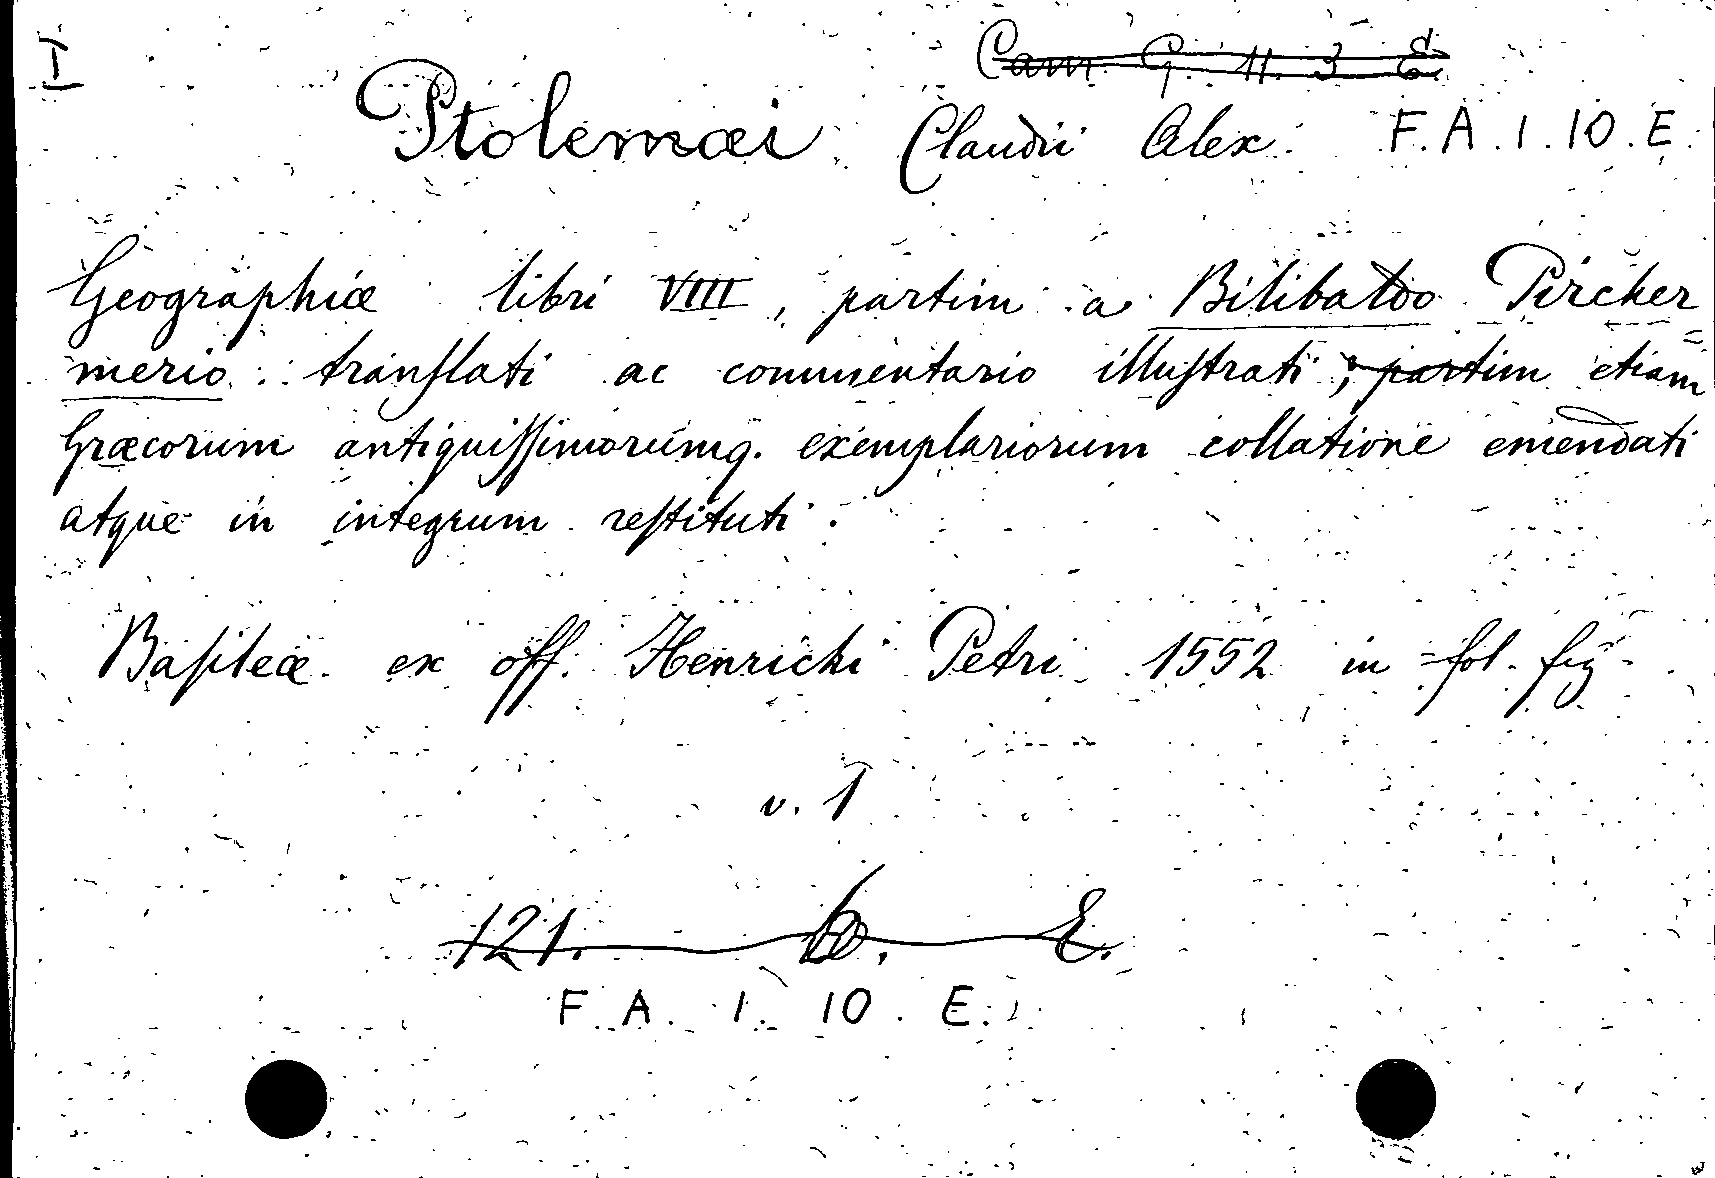 I
Cam G. 11. 3 E.
Ptolemæi Claudii Alex. F. A. 1. 10. E.
Geographiæ libri VIII, partim a Bilibaldo Pircker
merio translati ac commentario illustrati; partim etiam
Græcorum antiquissimorumq. exemplariorum collatione emendati
atque in integrum restituti.
Basileæ ex off. Henrichi Petri 1552 in fol. fig.
v. 1
121. b. E.
F. A. 1. 10. E.